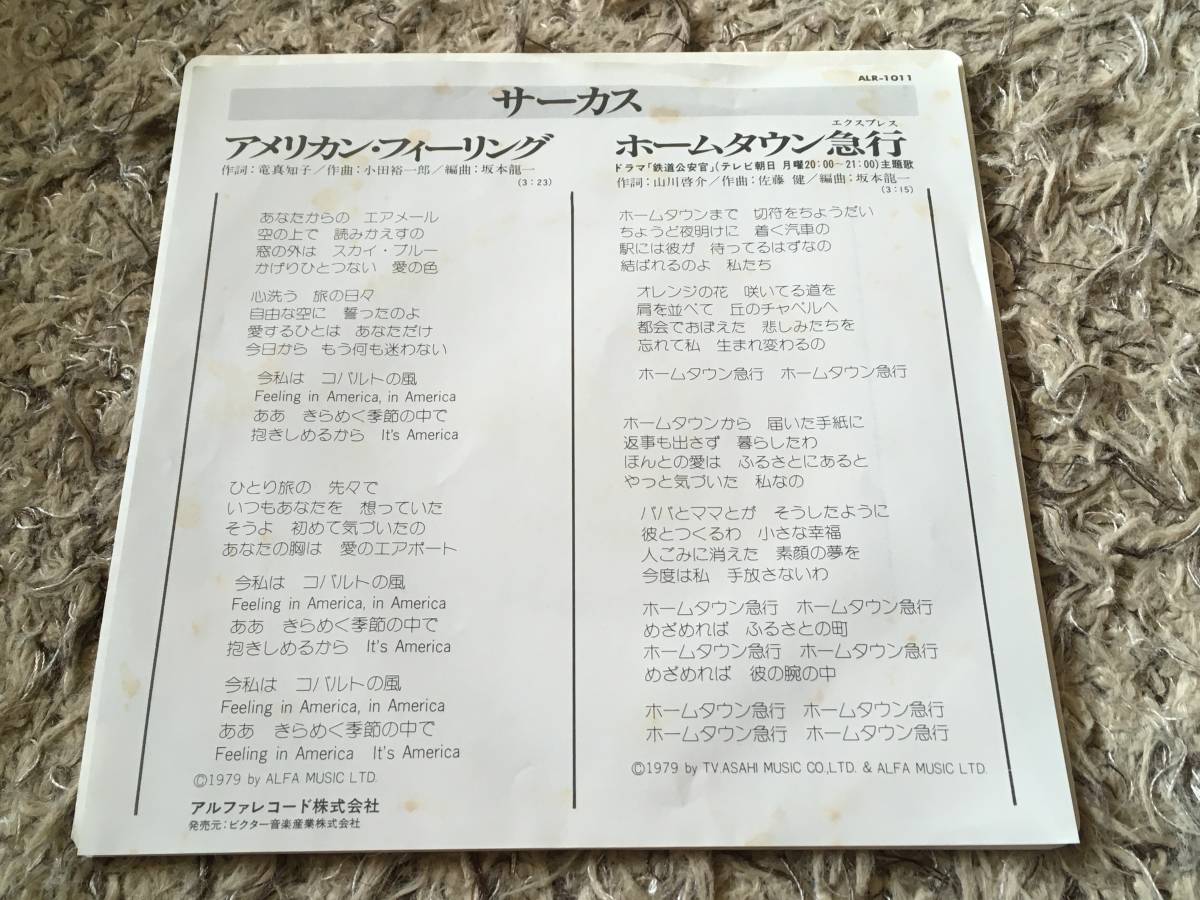 ALR-1011
サーカス
アメリカン・フィーリング
作詞：竜真知子／作曲：小田裕一郎／編曲：坂本龍一
(3：23)
あなたからの　エアメール
空の上で　読みかえすの
窓の外は　スカイ・ブルー
かげりひとつない　愛の色
心洗う　旅の日々
自由な空に　誓ったのよ
愛するひとは　あなただけ
今日から　もう何も迷わない
今私は　コバルトの風
Feeling in America, in America
ああ　きらめく季節の中で
抱きしめるから　It's America
ひとり旅の　先々で
いつもあなたを　想っていた
そうよ　初めて気づいたの
あなたの胸は　愛のエアポート
今私は　コバルトの風
Feeling in America, in America
ああ　きらめく季節の中で
抱きしめるから　It's America
今私は　コバルトの風
Feeling in America, in America
ああ　きらめく季節の中で
Feeling in America　It's America
©1979 by ALFA MUSIC LTD.
アルファレコード株式会社
発売元：ビクター音楽産業株式会社
エクスプレス
ホームタウン急行
ドラマ「鉄道公安官」(テレビ朝日 月曜20:00～21:00)主題歌
作詞：山川啓介／作曲：佐藤 健／編曲：坂本龍一
(3：15)
ホームタウンまで　切符をちょうだい
ちょうど夜明けに　着く汽車の
駅には彼が　待ってるはずなの
結ばれるのよ　私たち
オレンジの花　咲いてる道を
肩を並べて　丘のチャペルへ
都会でおぼえた　悲しみたちを
忘れて私　生まれ変わるの
ホームタウン急行　ホームタウン急行
ホームタウンから　届いた手紙に
返事も出さず　暮らしたわ
ほんとの愛は　ふるさとにあると
やっと気づいた　私なの
パパとママとが　そうしたように
彼とつくるわ　小さな幸福
人ごみに消えた　素顔の夢を
今度は私　手放さないわ
ホームタウン急行　ホームタウン急行
めざめれば　ふるさとの町
ホームタウン急行　ホームタウン急行
めざめれば　彼の腕の中
ホームタウン急行　ホームタウン急行
ホームタウン急行　ホームタウン急行
©1979 by TV.ASAHI MUSIC CO,LTD. & ALFA MUSIC LTD.